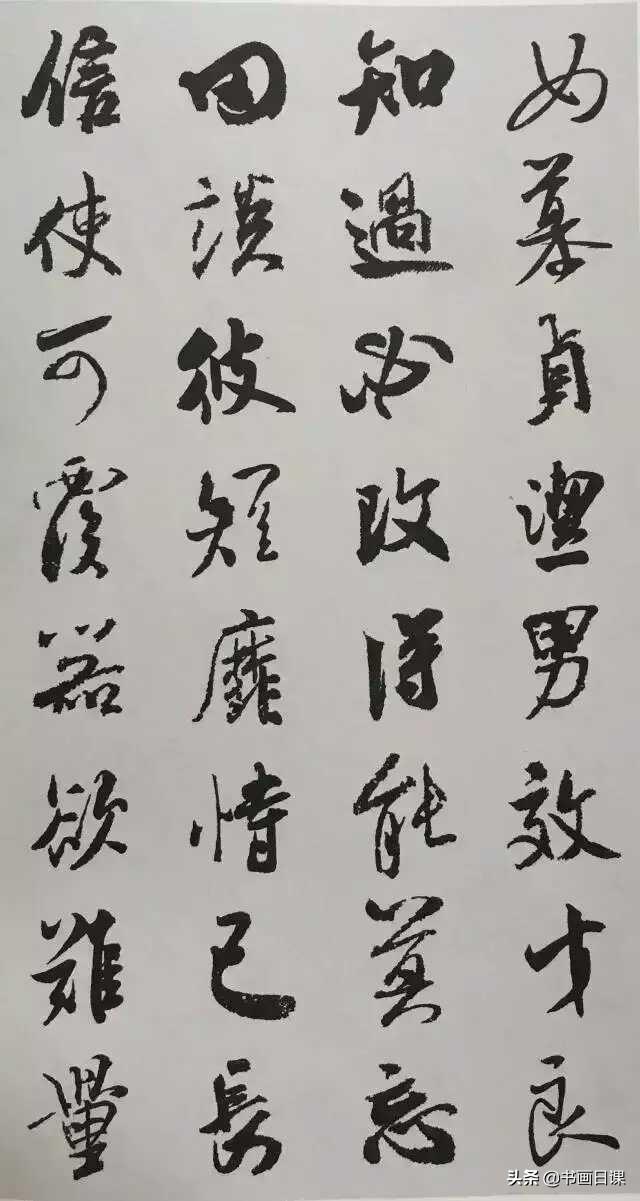 女慕貞潔男效才良
知過必改得能莫忘
罔談彼短靡恃己長
信使可覆器欲難量
头条 @书画日课